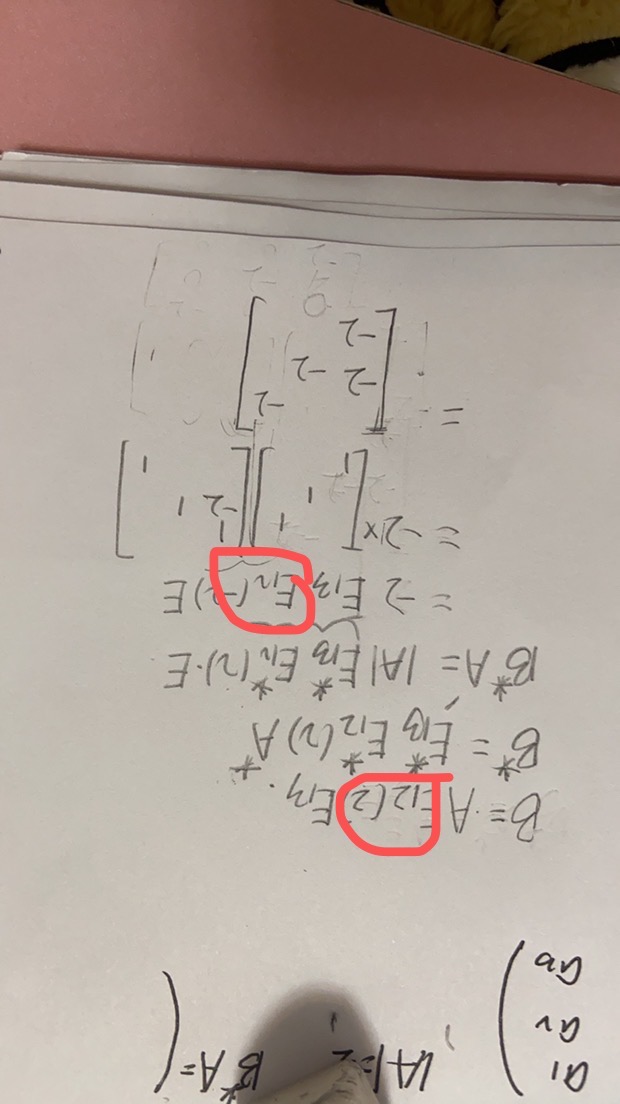 a₁
a₂
a₃
, |A|=2, B*A=(
B=A E₁₂(2) E₁₃.
B*= E₁₃* E₁₂*(2) A*
B*A= |A| E₁₃* E₁₂*(2)·E
= -2 E₁₃ E₁₂(-2) E
= -2× [ 1 1 1 ] [ 1 -2 1 1 ]
= [ -2 -2 -2 -2 ]